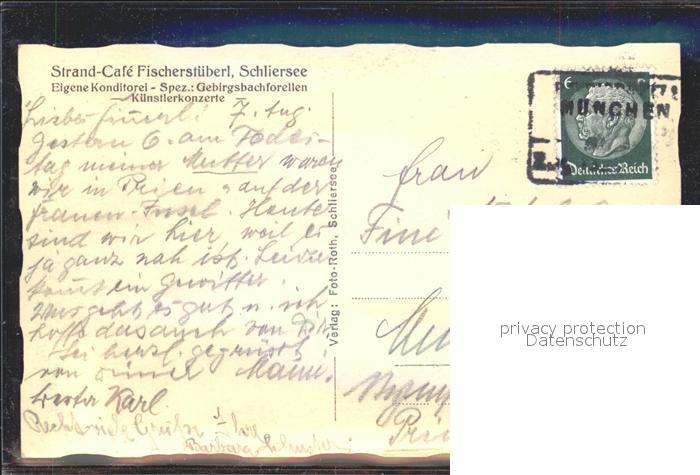 Strand-Café Fischerstüberl, Schliersee
Eigene Konditorei - Spez.: Gebirgsbachforellen
Künstlerkonzerte
7. Aug.
Gestern 6. am Todes-
tag meiner Mutter waren
wir in Prien u. auf der
Frauen-Insel. Heute
sind wir hier, weil es
ja ganz nah ist. Leider
kommt ein Gewitter.
Uns geht es gut u. ich
hoffe das auch von Dir.
Sei herzl. gegrüsst
von Deiner
Karl
Recht viele Grüße
Barbara
Verlag: Foto-Roth, Schliersee
Frau
Fine
6
MÜNCHEN
Deutsches Reich
privacy protection
Datenschutz